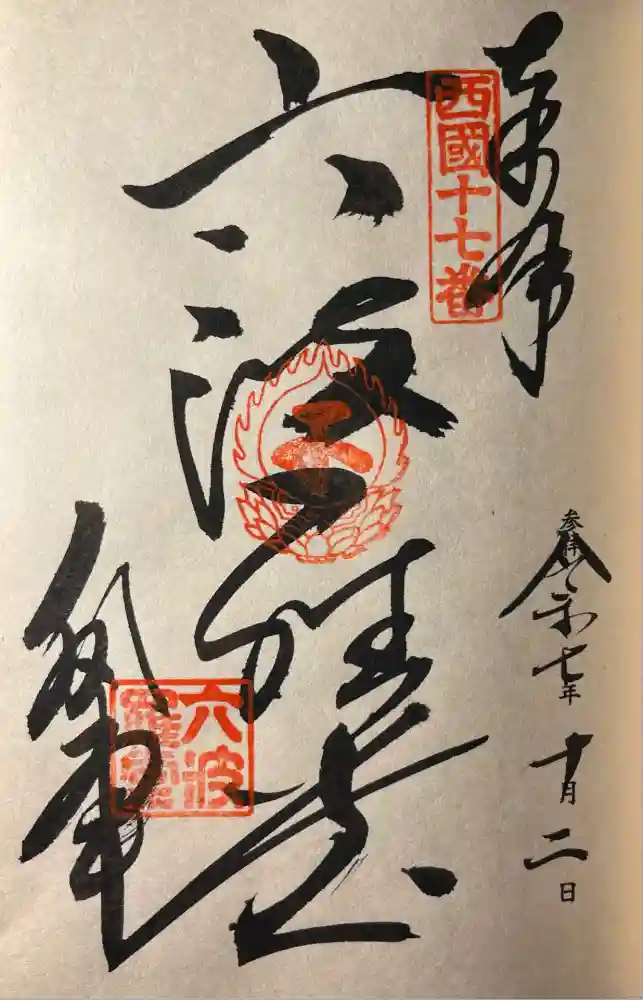 奉拝
西國十七番
参拝
令和七年
十月二日
六波羅堂
六波
羅蜜寺